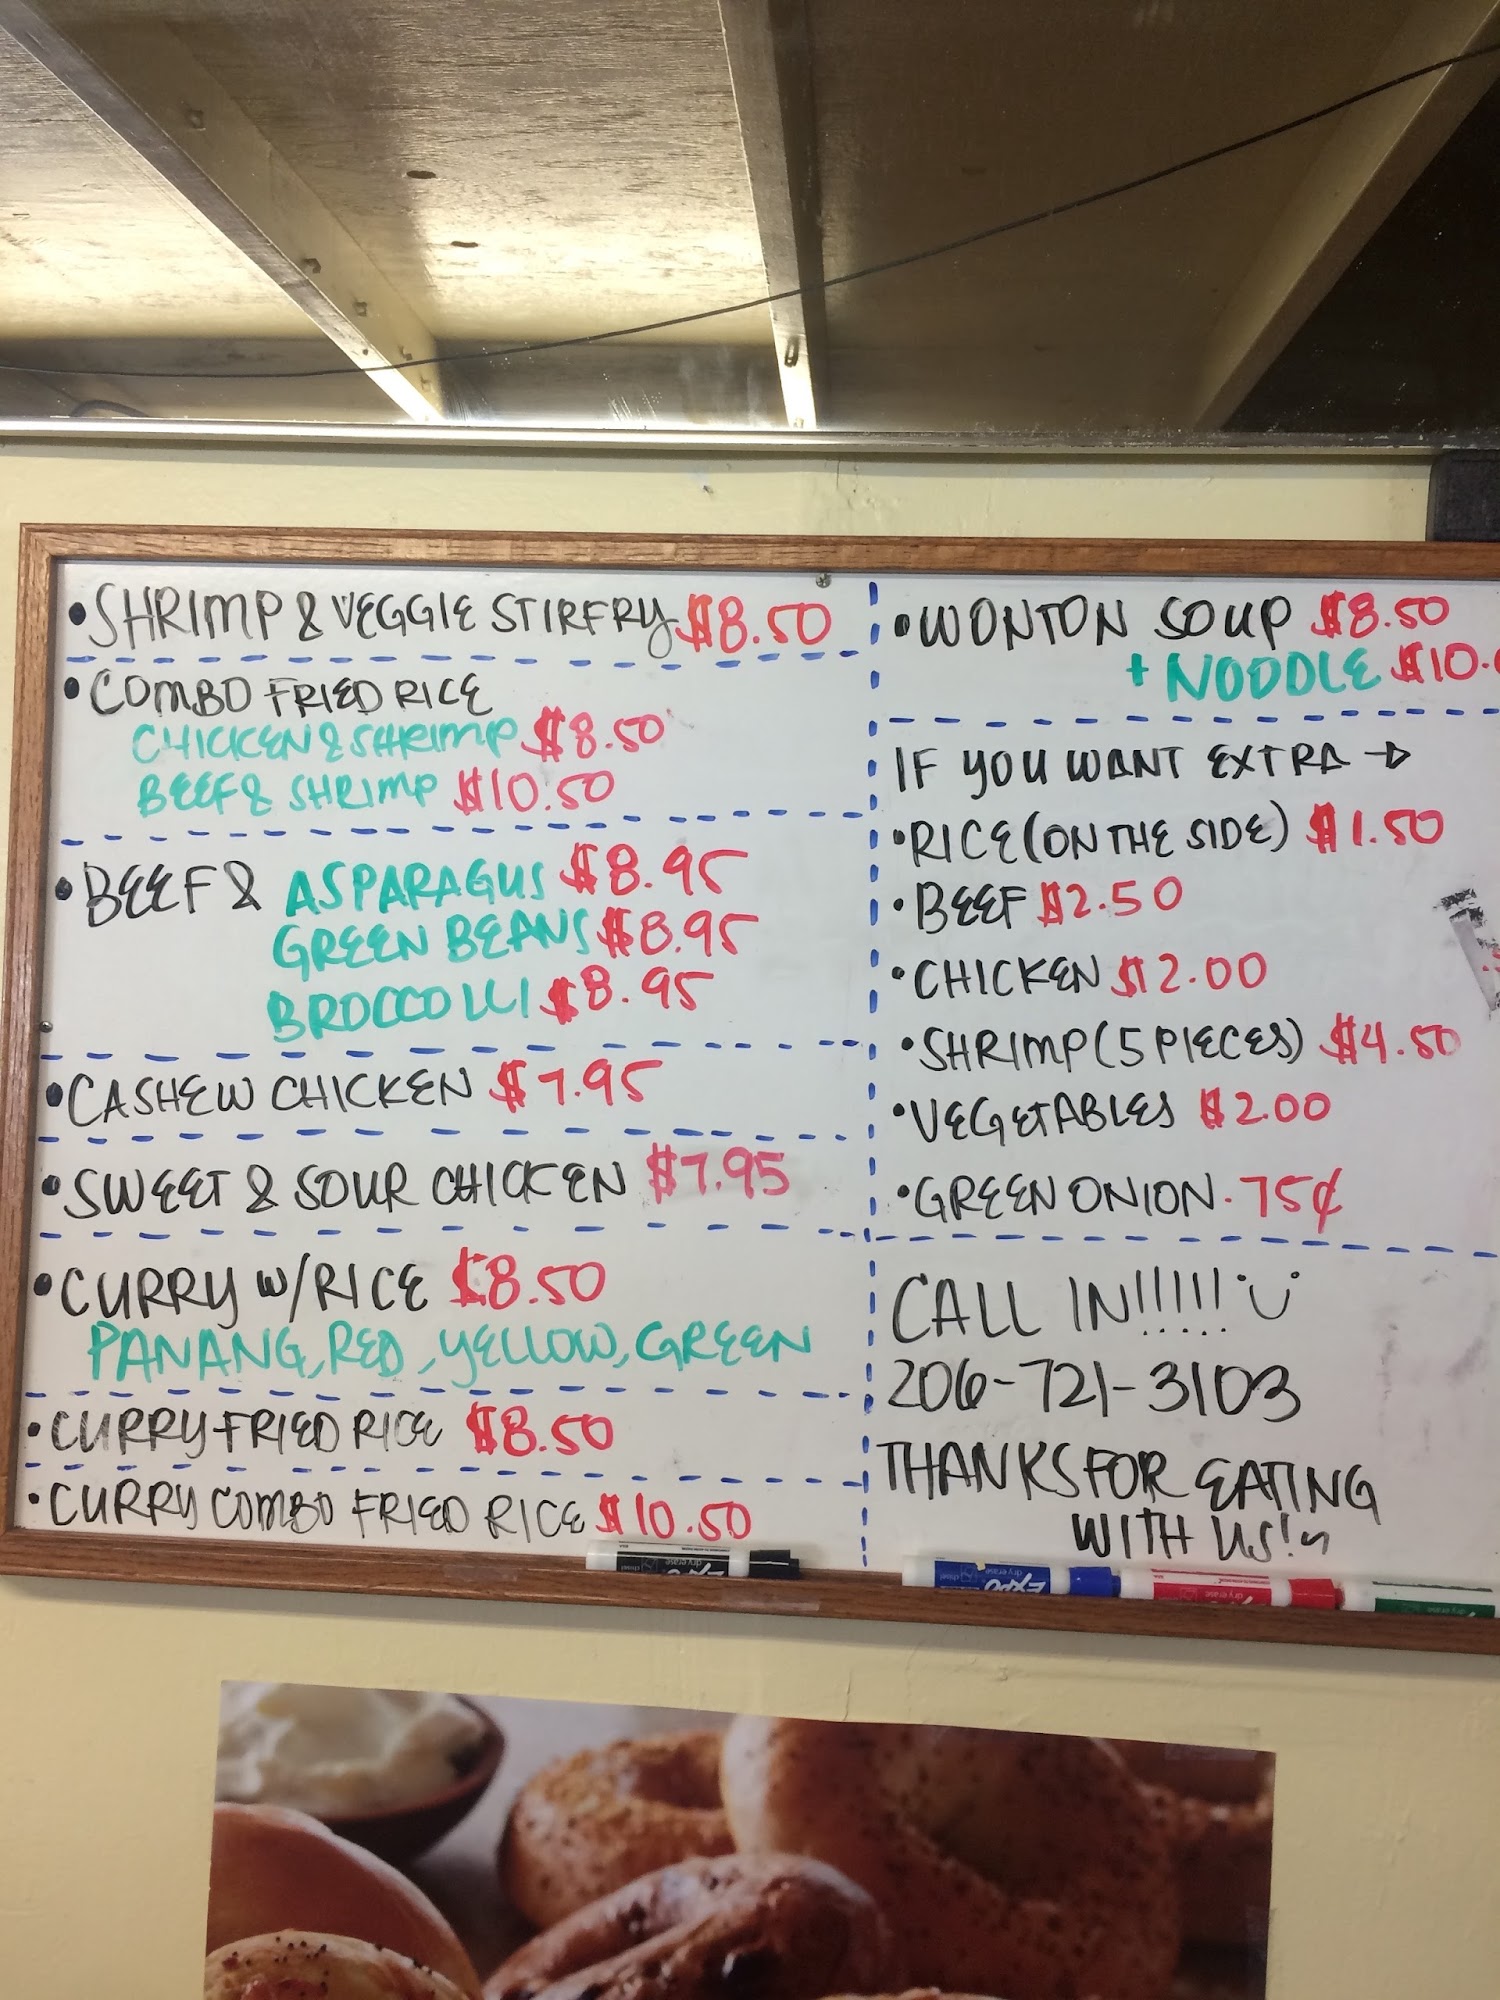 •SHRIMP & VEGGIE STIRFRY $8.50
•COMBO FRIED RICE
CHICKEN & SHRIMP $8.50
BEEF & SHRIMP $10.50
•BEEF & ASPARAGUS $8.95
GREEN BEANS $8.95
BROCCOLI $8.95
•CASHEW CHICKEN $7.95
•SWEET & SOUR CHICKEN $7.95
•CURRY W/RICE $8.50
PANANG, RED, YELLOW, GREEN
•CURRY FRIED RICE $8.50
•CURRY COMBO FRIED RICE $10.50
•WONTON SOUP $8.50
+ NOODLE $10.
IF YOU WANT EXTRA →
•RICE (ON THE SIDE) $1.50
•BEEF $2.50
•CHICKEN $2.00
•SHRIMP (5 PIECES) $4.50
•VEGETABLES $2.00
•GREEN ONION .75¢
CALL IN!!!!! Ü
206-721-3103
THANKS FOR EATING
WITH US!~
EXPO dry erase
EXPO dry erase
dry erase
dry erase